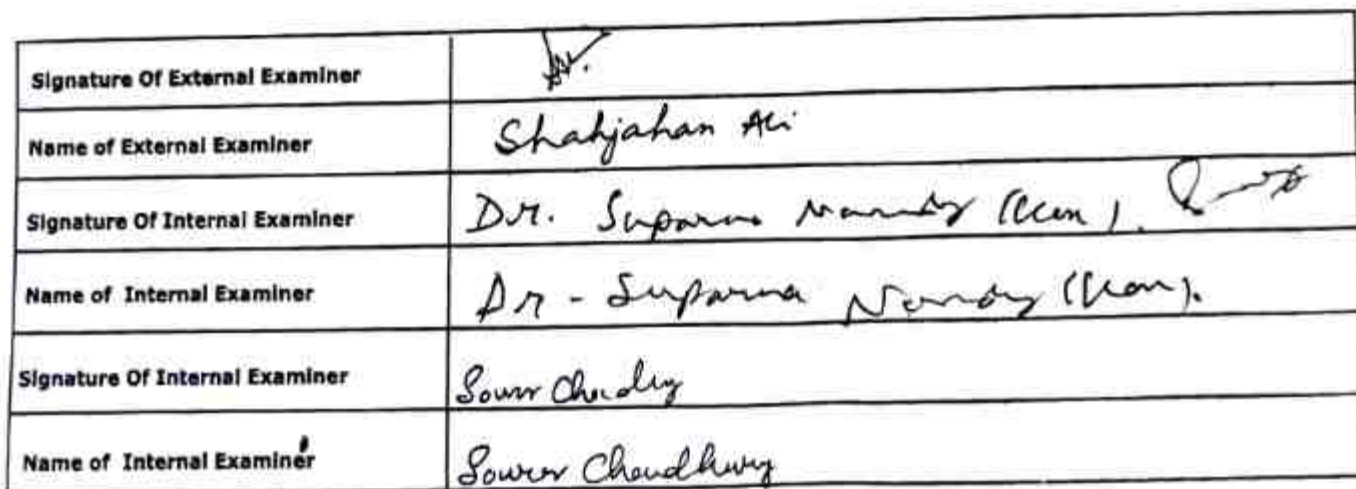 Signature Of External Examiner
Name of External Examiner Shahjahan Ali
Signature Of Internal Examiner Dr. Suparna Nandy (Kar).
Name of Internal Examiner Dr - Suparna Nandy (Kar).
Signature Of Internal Examiner
Name of Internal Examiner Chaudhury